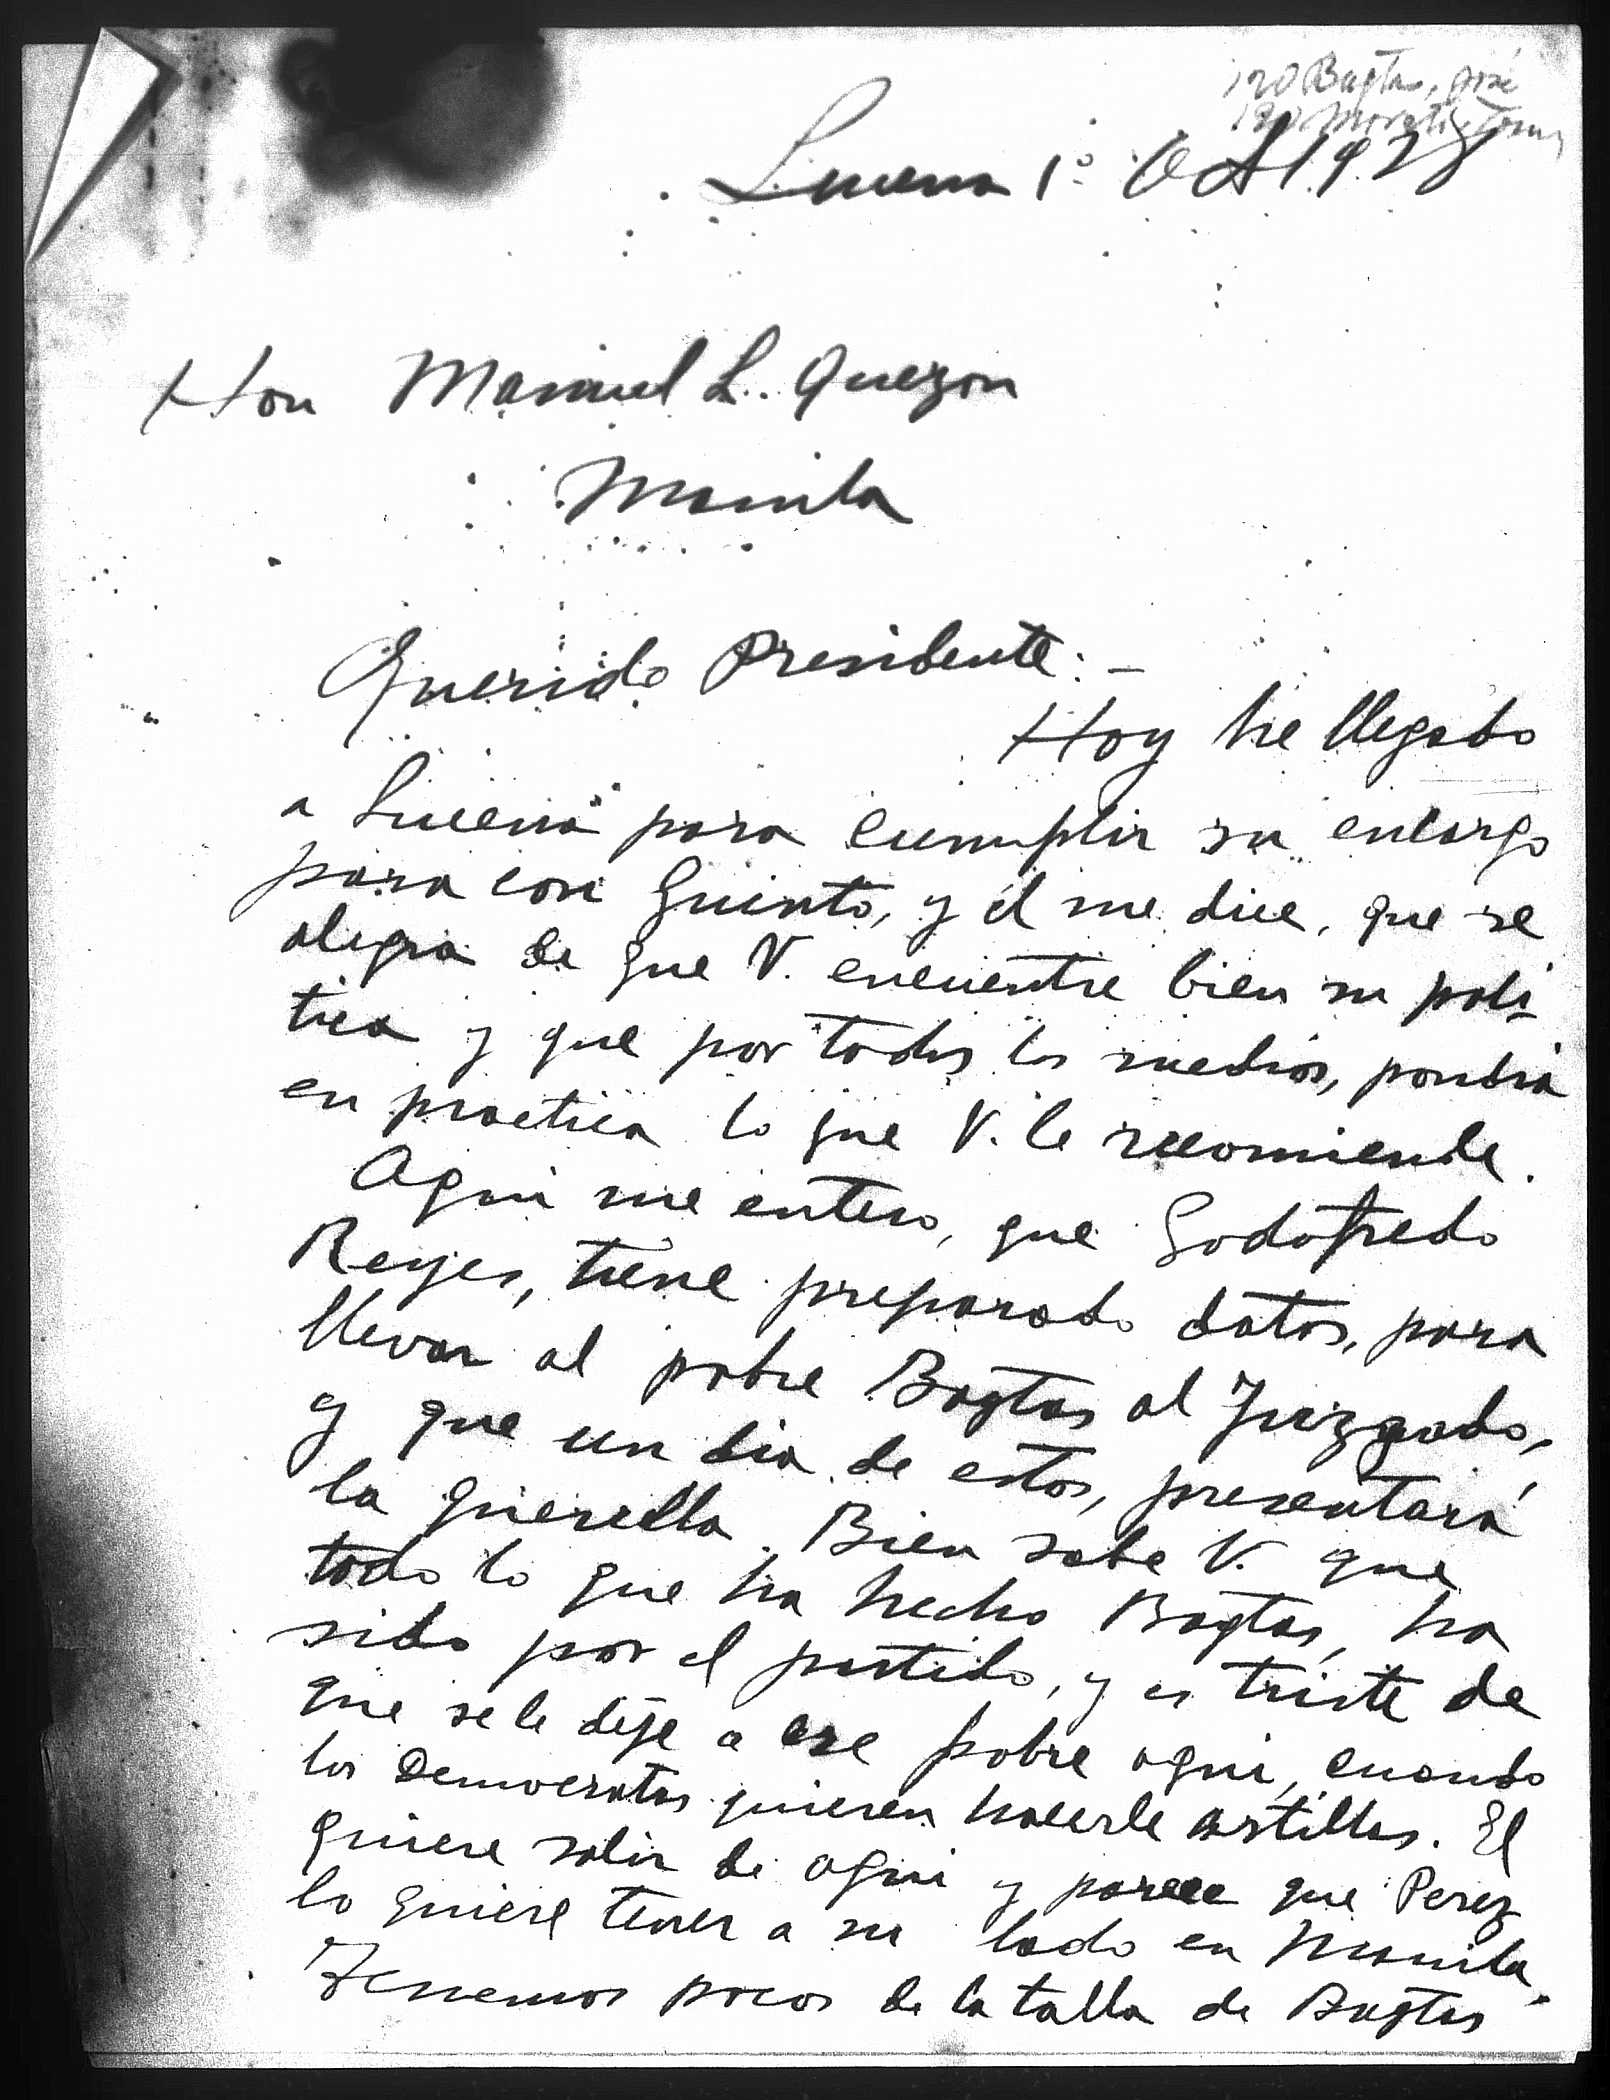 Bagtas, José
Lucena 1º Oct 192
Hon Manuel L. Quezon
Manila
Querido Presidente:-
Hoy he llegado
a Lucena para cumplir su encargo
para con Guinto, y él me dice, que se
alegra de que V. encuentre bien su poli-
tica y que por todos los medios, pondra
en practica lo que V. le recomiende.
Aqui me entero, que Godofredo
Reyes, tiene preparado datos, para
llevar al pobre Bagtas al Juzgado,
y que un dia de estos, presentará
la querella. Bien sabe V. que
todo lo que ha hecho Bagtas, ha
sido por el partido, y es triste de
que se le deje a ese pobre aqui, cuando
los Democratas quieren hacerle astillas. El
quiere salir de aqui y parece que Perez
lo quiere tener a su lado en Manila.
Tenemos pocos de la talla de Bagtas